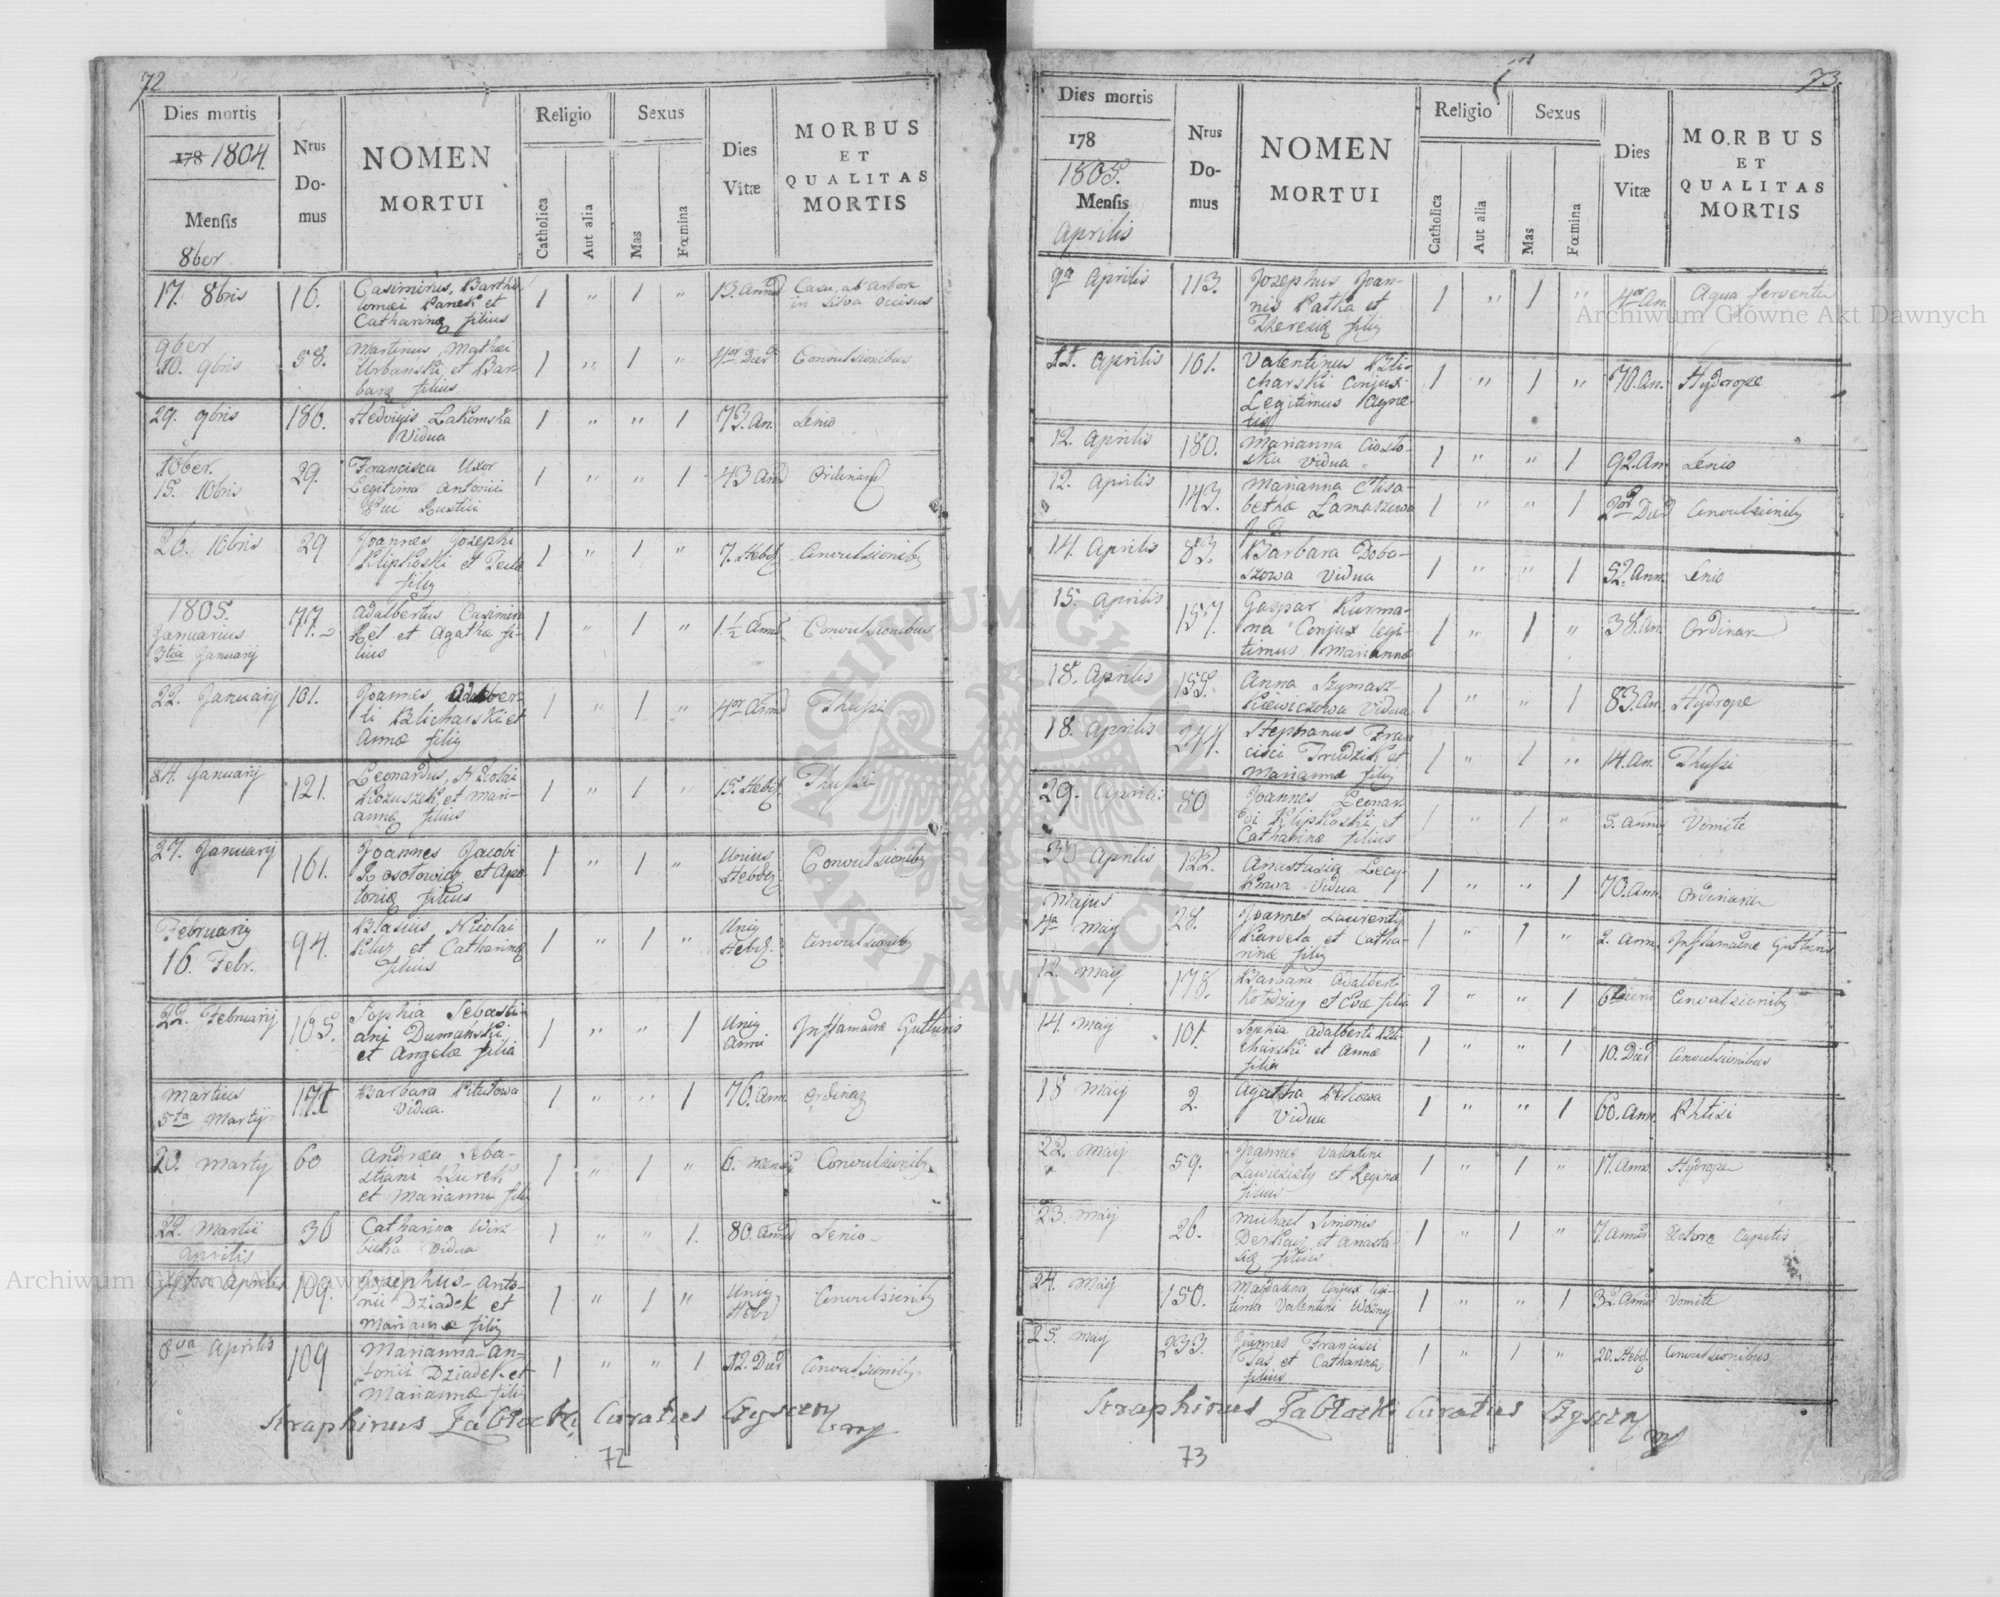 72
Dies mortis
178 1804.
Mensis
8ber
Nrus
Do-
mus
NOMEN
MORTUI
Religio
Catholica
Aut alia
Sexus
Mas
Fœmina
Dies
Vitæ
MORBUS
ET
QUALITAS
MORTIS
17. 8bris 16. Casimirus, Bartho
lomæi Panek et
Catharinæ filius 1 " 1 " 13. Casu, ab arbore
in silva occisus
9ber
10. 9bris 58. Martinus, Mathæi
Urbanski, et Bar
baræ filius 1 " 1 " 4or Dier Convulsionibus
29. 9bris 186. Hedvigis Lakomska
Vidua 1 " " 1 73. An. Senio
10ber.
15. 10bris 29. Francisca Uxor
Legitima Antonii
Rustici 1 " " 1 43 Ordinaria
26. 10bris 29 Joannes Josephi
Klipkoski et Teclæ
filius 1 " 1 " 7. Hebd. Convulsionib
1805.
Januarius
3tia Januarij 77. Adalbertus Casimiri
Kel et Agathæ fi-
lius 1 " 1 " 1 1/2 Convulsionibus
22. Januarij 101. Joannes Adalber
ti Blicharski et
Annæ filius 1 " 1 " 4or Thussi
24. Januarij 121. Leonardus, Nicolai
Kozuszek, et Mari-
annæ filius 1 " 1 " 15. Hebd. Thussi
27. Januarij 161. Joannes Jacobi
et Apo
loniæ filius 1 " 1 " Unius
Hebdo. Convulsionib
Februarij
16. Febr. 94. Blasius, Nicolai
et Catharinæ
filius 1 " 1 " Unius
Hebd. Convulsionib
22. Februarij 165. Sophia Sebasti-
ani Dumanski
et Angelæ filia 1 " " 1 Unius
Anni Inflamatione Gutturis
Martius
5ta Martij 171. Barbara
Vidua. 1 " " 1 76. Ann. Ordinar
20. Martij 60 Andreas Seba-
stiani Burek
et Mariannæ filius 1 " 1 " 6. Convulsionib
22. Martii 36 Catharina Wirz
bicka Vidua 1 " " 1. 80. Senio
Aprilis
Aprilis 109. Josephus Anto-
nii Dziadek et
Mariannæ filius 1 " 1 " Unius
Hebd Convulsionib
8va Aprilis 109 Marianna An-
tonii Dziadek et
Mariannæ filia 1 " " 1. 12. Dier Convulsionib
Seraphinus Zabłocki Curatus
72
73.
Dies mortis
178
1805.
Mensis
Aprilis
Nrus
Do-
mus
NOMEN
MORTUI
Religio
Catholica
Aut alia
Sexus
Mas
Fœmina
Dies
Vitæ
MORBUS
ET
QUALITAS
MORTIS
9a Aprilis 113. Josephus Joan-
nis et
Theresiæ filius 1 " 1 " 4or An. Aqua ferventi
11. Aprilis 101. Valentinus Bli-
charski Conjux
Legitimus Agne-
tis 1 " 1 " 70. An. Hydrope
12. Aprilis 180. Marianna
Vidua 1 " " 1 92. An Senio
12. Aprilis 143. Marianna Elisa-
bethæ 1 " " 1 Convulsionib
14. Aprilis 83. Barbara Doba-
szowa Vidua 1 " " 1 52. Ann. Senio
15. Aprilis 157. Gaspar Kurma-
na Conjux legi-
timus Mariannæ 1 " 1 " 38. An. Ordinar
18. Aprilis 155. Anna Szymasz-
kiewiczowa Vidua 1 " " 1 83. An. Hydrope
18. Aprilis 277. Stephanus Fran
cisci et
Mariannæ filius 1 " 1 " 14. An. Thussi
29. Aprilis 80 Joannes Leonar
di Klipkoski et
Catharinæ filius 1 " 1 " 5. Vomitu
30 Aprilis 122. Anastasia
Vidua 1 " " 1 70. Ann. Ordinaria
Majus
May 28. Joannes Laurentij
Kardela et Catha-
rinæ filius 1 " 1 " 2. Ann. Inflamatione Gutturis
12. May 178. Barbara Adalberti
Kołodziey et Evæ filia 1 " " 1 6 Convulsionib
14. May 101. Sophia Adalberti Bli-
charski et Annæ
filia 1 " " 1 10. Dier Convulsionibus
18 May 2. Agatha
Vidua 1 " " 1 60. Ann. Phtisi
22. May 59. Joannes Valentini
et Reginæ
filius 1 " 1 " 17. Ann. Hydrope
23. May 26. Michael Simonis
et Anasta
siæ filius 1 " 1 " 7. Dolore Capitis
24. May 150. Magdalena Conjux legi-
tima Valentini Wozny 1 " " 1 32. Vomitu
25. May 233. Joannes Francisci
Sas et Catharinæ
filius 1 " 1 " 20. Hebd. Convulsionibus
Seraphinus Zabłocki Curatus
73
Archiwum Główne Akt Dawnych
Archiwum Główne Akt Dawnych
ARCHIWUM GŁÓWNE
AKT DAWNYCH